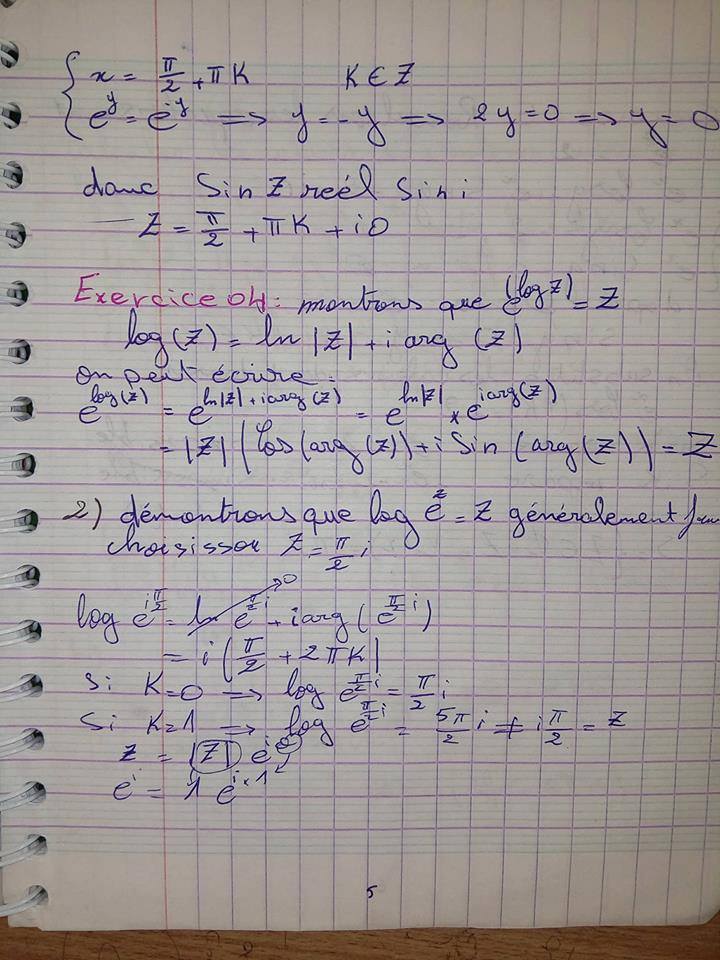 { x = π/2 + πK K ∈ Z
e^y = e^-y ⟹ y = -y ⟹ 2y = 0 ⟹ y = 0
danc Sin Z réél Sini
— Z = π/2 + πK + i0
Exercice 04: montrons que e^(log Z) = Z
log(Z) = ln |Z| + i arg (Z)
on peut écrire:
e^log(Z) = e^ln|Z| + iarg(Z) = e^ln|Z| × e^iarg(Z)
= |Z| (Cos(arg(Z)) + i Sin (arg(Z)) = Z
2) démontrons que log e^z = Z généralement
choisisson Z = π/2 i
log e^iπ/2 = ln e^π/2 i + iarg(e^π/2 i) 0
= i(π/2 + 2πK|
Si K=0 → log e^π/2 i = π/2 i
Si K=1 ⟹ log e^π/2 i = 5π/2 i ≠ iπ/2 = Z
z = |Z| e^iθ
e^i = 1 e^i×1
5